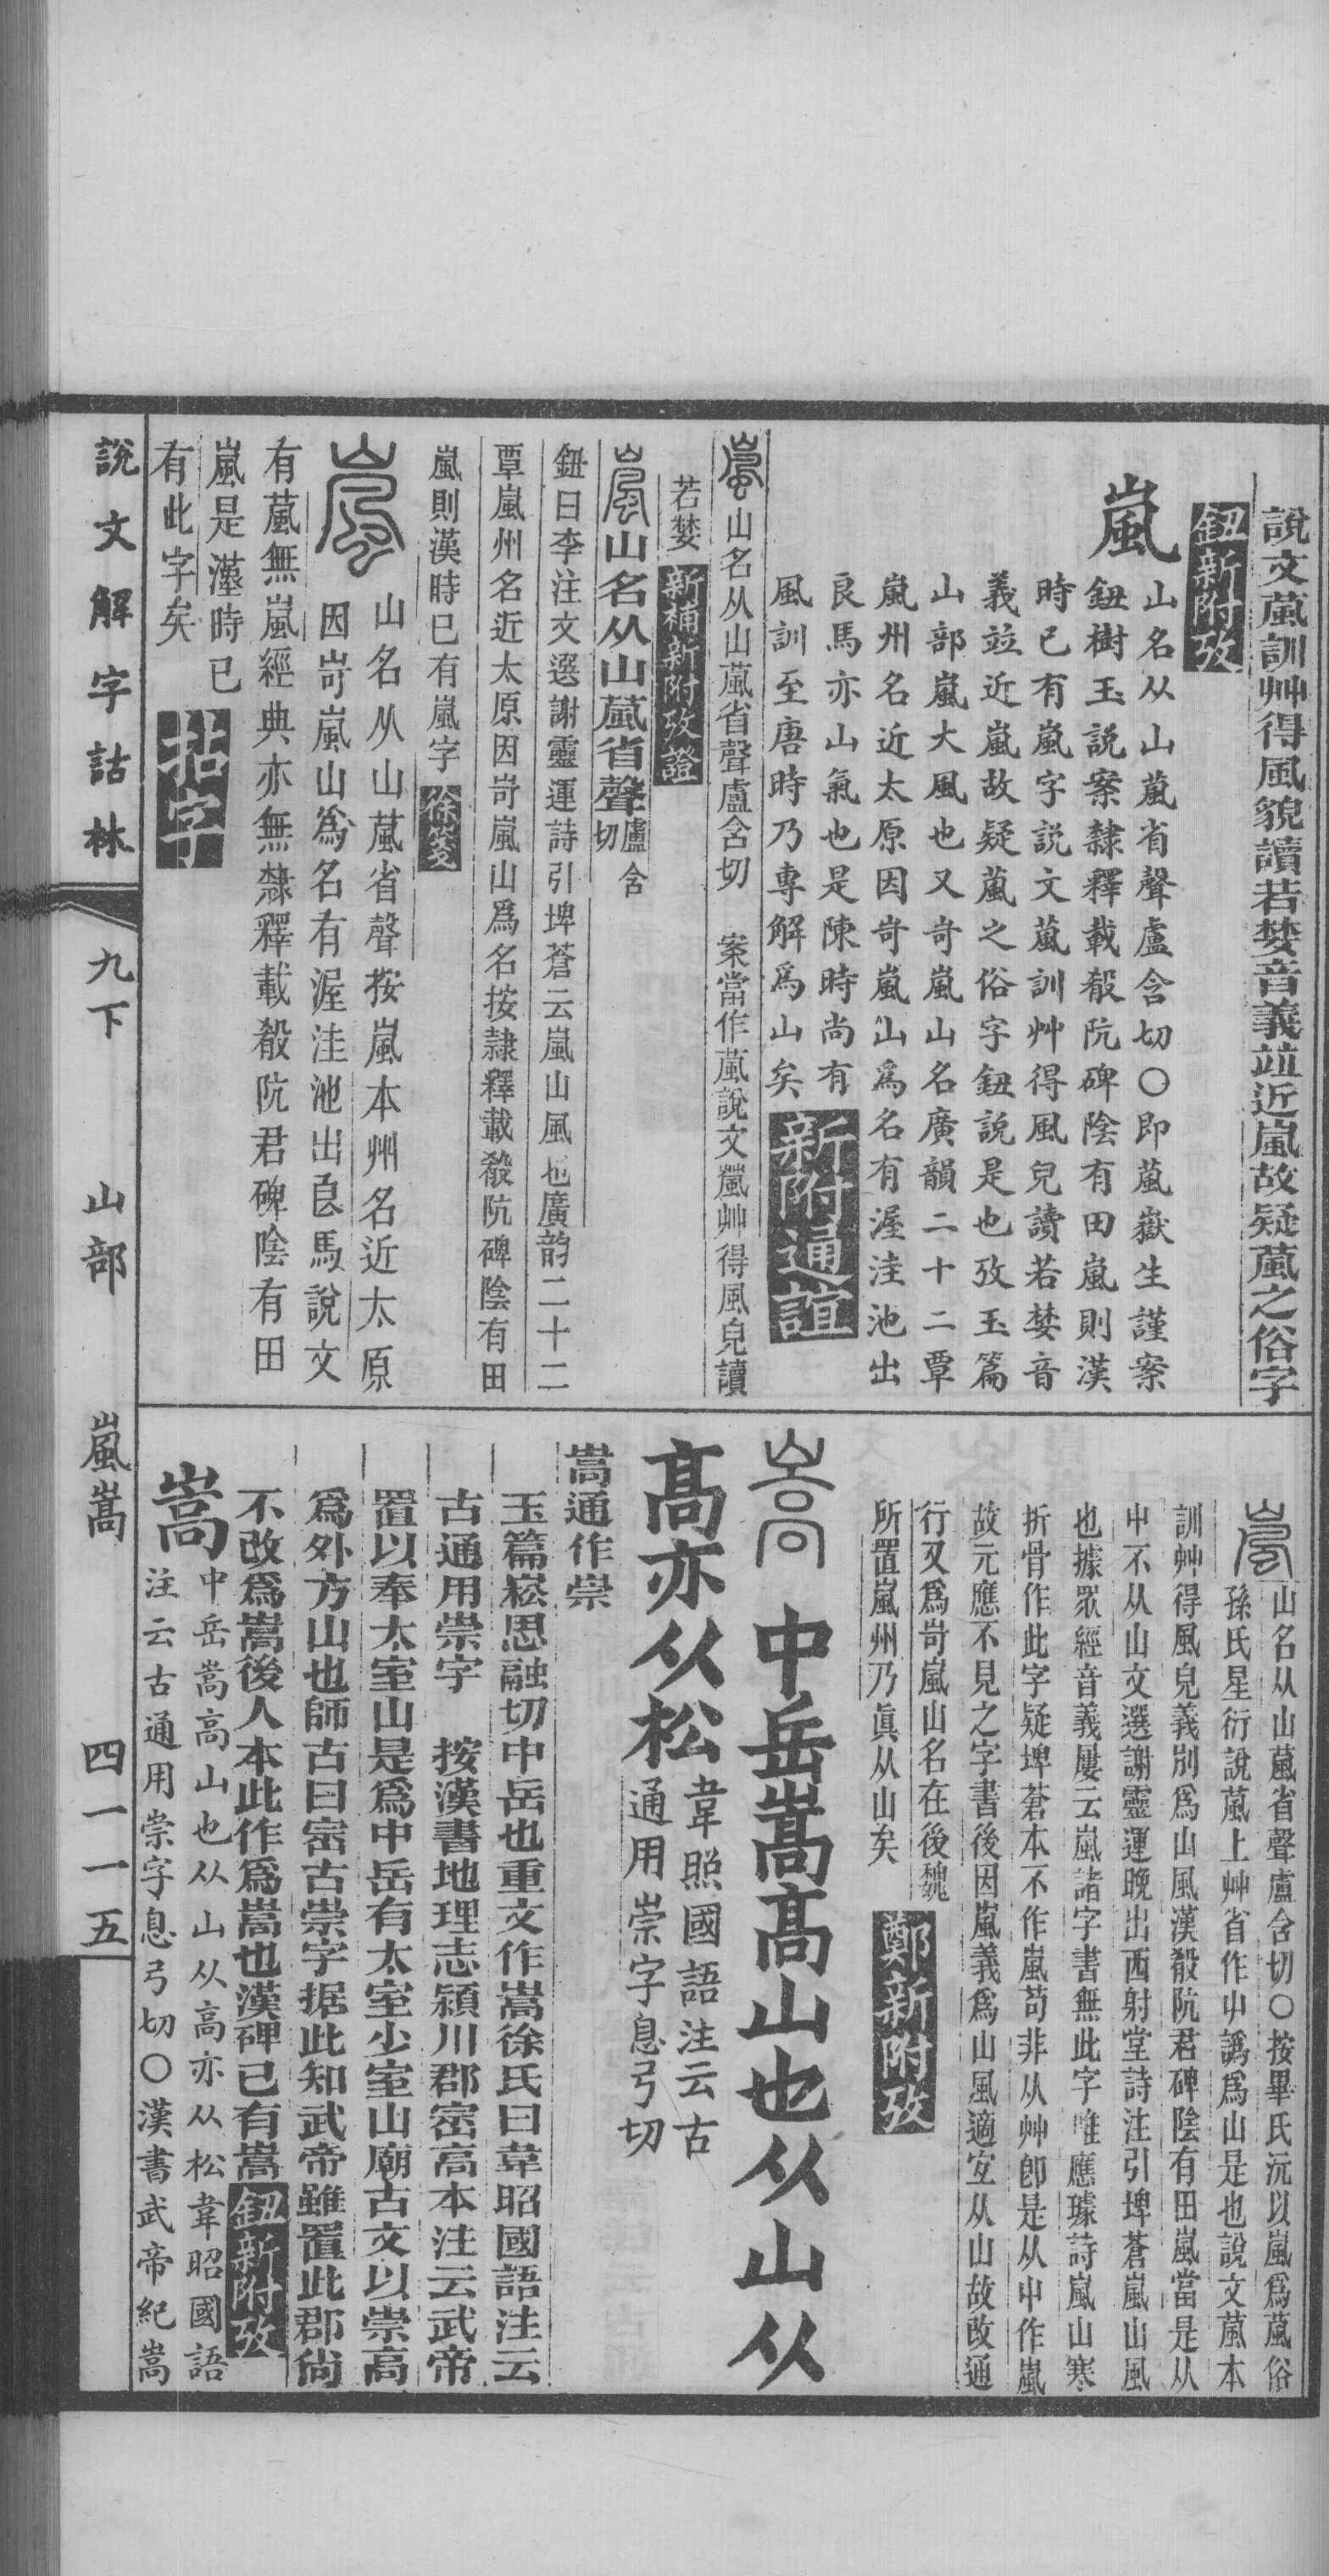 說文葻訓艸得風貌讀若婪音義竝近嵐故疑葻之俗字
鈕新附攷
嵐
山名从山葻省聲盧含切〇即葻嶽生謹案
鈕樹玉説案隸釋載殽阬碑陰有田嵐則漢
時已有嵐字説文葻訓艸得風皃讀若婪音
義竝近嵐故疑葻之俗字鈕説是也攷玉篇
山部嵐大風也又岢嵐山名廣韻二十二覃
嵐州名近太原因岢嵐山為名有渥洼池出
良馬亦山氣也是陳時尚有
風訓至唐時乃專解為山矣
新附通誼
山名从山葻省聲盧含切 案當作葻說文葻艸得風皃讀
若婪
新補新附攷證
山名从山葻省聲盧含切
鈕曰李注文選謝靈運詩引埤蒼云嵐山風也廣韵二十二
覃嵐州名近太原因岢嵐山爲名按隸釋載殽阬碑陰有田
嵐則漢時已有嵐字
徐箋
山名从山葻省聲按嵐本州名近太原
因岢嵐山為名有渥洼池出良馬說文
有葻無嵐經典亦無隸釋載殽阬君碑陰有田
嵐是漢時已
有此字矣
説文解字詁林
九下
山部
嵐嵩
四一一五
山名从山葻省聲盧含切〇按畢氏沅以嵐爲葻俗
孫氏星衍說葻上艸省作屮譌爲山是也說文葻本
訓艸得風皃義別爲山風漢殽阬君碑陰有田嵐當是从
屮不从山文選謝靈運晚出西射堂詩注引埤蒼嵐山風
也據眾經音義屢云嵐諸字書無此字唯應璩詩嵐山寒
折骨作此字疑埤蒼本不作嵐苟非从艸卽是从屮作嵐
故元應不見之字書後因嵐義爲山風適宜从山故改通
行又爲岢嵐山名在後魏
所置嵐州乃眞从山矣
鄭新附攷
中岳嵩高山也从山从
高亦从松
韋昭國語注云古
通用崇字息弓切
嵩通作崇
玉篇崧思融切中岳也重文作嵩徐氏曰韋昭國語注云
古通用崇字 按漢書地理志潁川郡崈高本注云武帝
置以奉太室山是爲中岳有太室少室山廟古文以崇高
爲外方山也師古曰崈古崇字据此知武帝雖置此郡尙
不改爲嵩後人本此作爲嵩也漢碑已有嵩
鈕新附攷
嵩
中岳嵩高山也从山从高亦从松韋昭國語
注云古通用崇字息弓切〇漢書武帝紀嵩